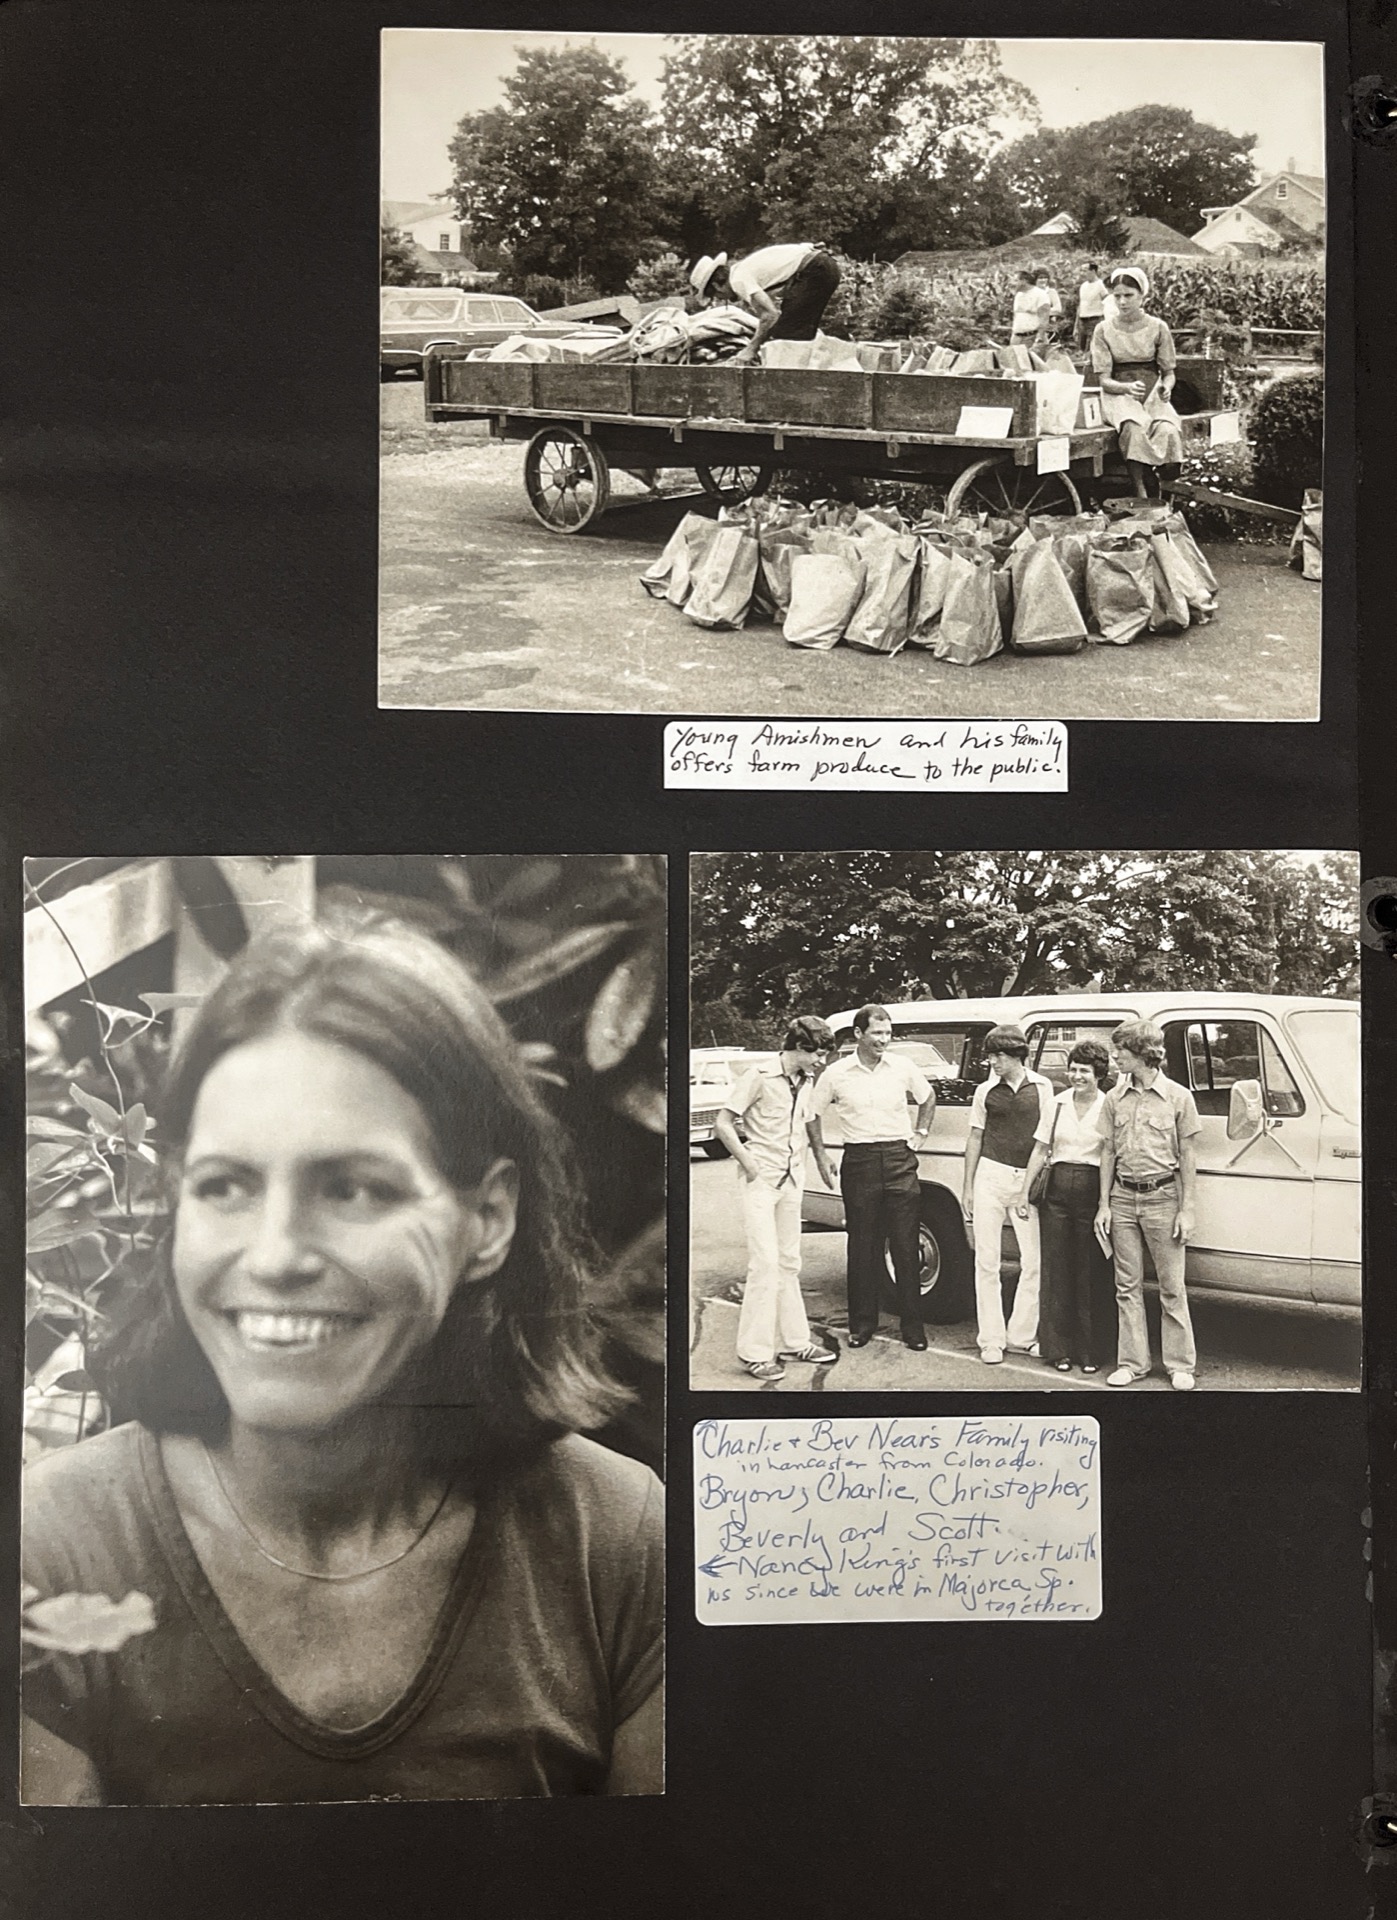 1
Young Amishmen and his family
offers farm produce to the public.
Charlie + Bev Near's Family visiting
in Lancaster from Colorado.
Bryon, Charlie, Christopher,
Beverly and Scott.
← Nancy King's first visit with
us since we were in Majorca Sp.
together.